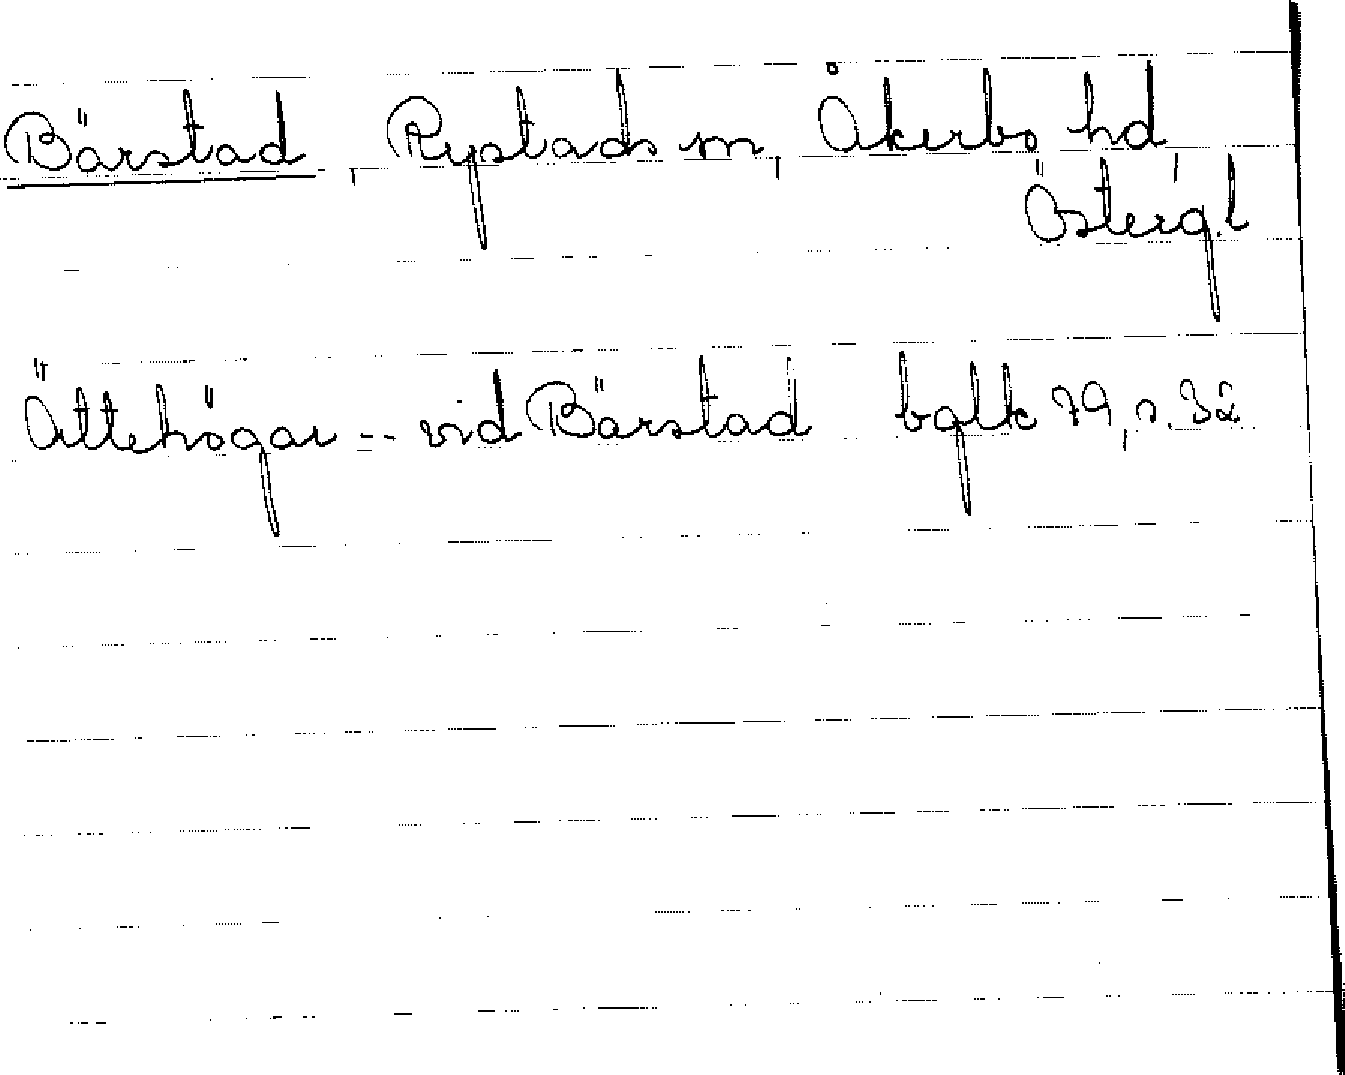 Bärstad, Rystads sn, Åkerbo hd,
Österg.l
Ättehögar -- vid Bärstad bglk 79, s. 32